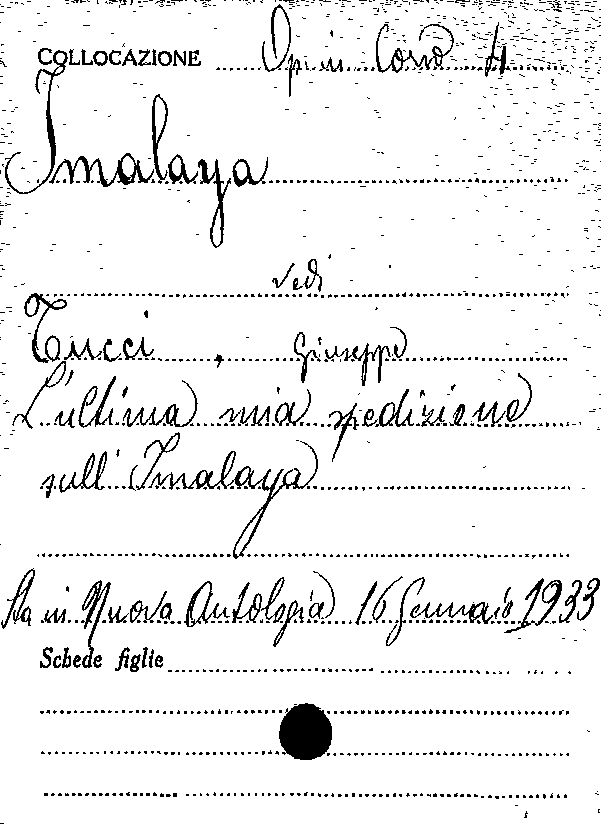 COLLOCAZIONE Op. in Corso 4
Imalaya
vedi
Tucci, Giuseppe
L'ultima mia spedizione
sull' Imalaya
Sta in Nuova Antologia 16 Gennaio 1933
Schede figlie